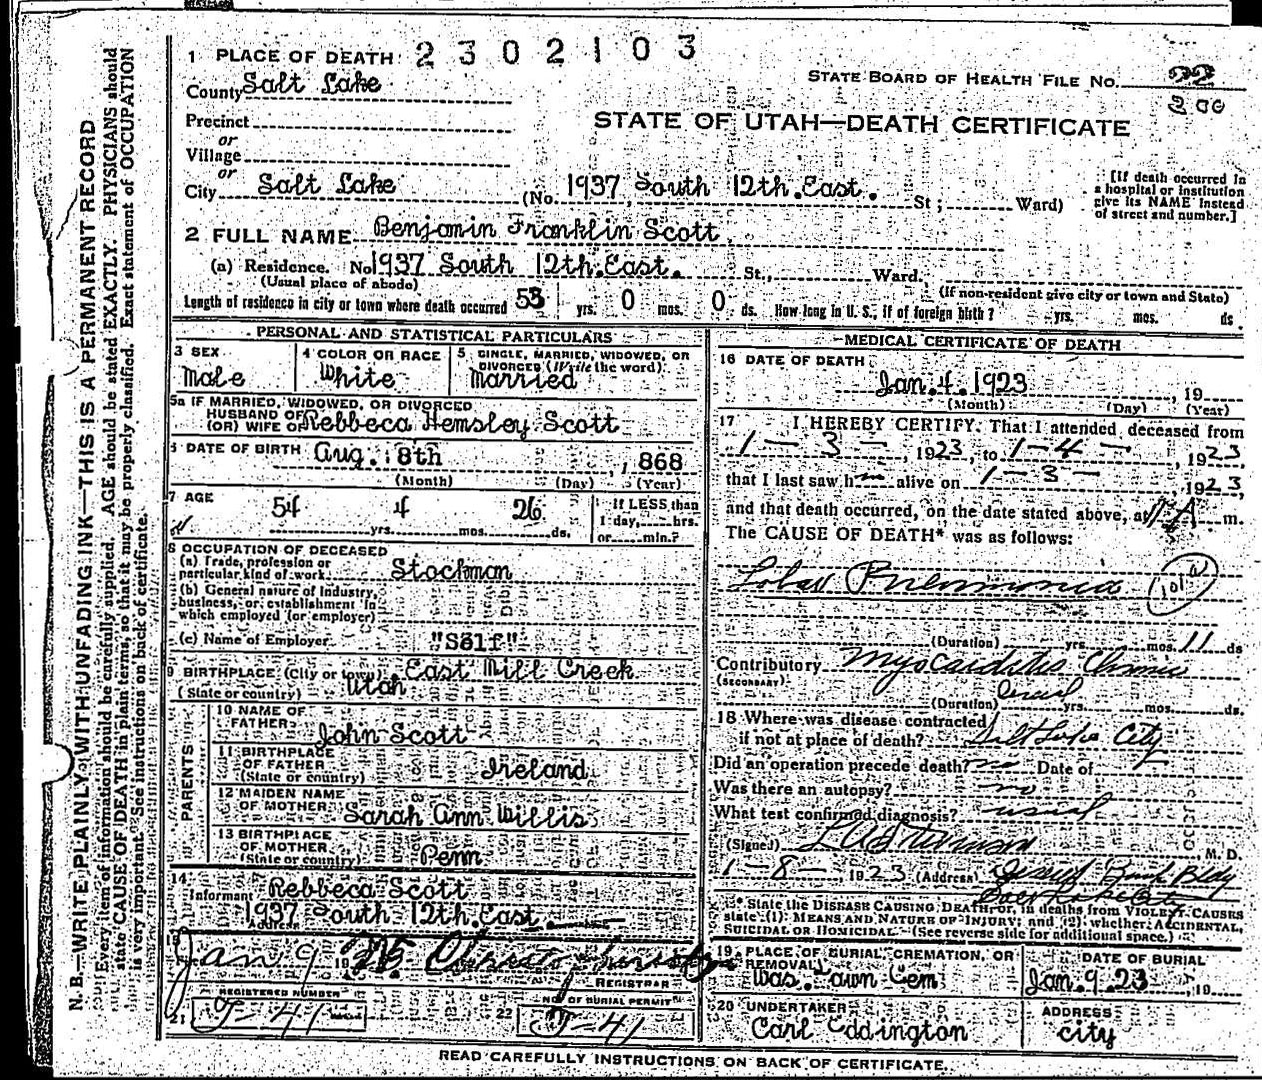 N. B.—WRITE PLAINLY WITH UNFADING INK—THIS IS A PERMANENT RECORD
Every item of information should be carefully supplied. AGE should be stated EXACTLY. PHYSICIANS should
state CAUSE OF DEATH in plain terms, so that it may be properly classified. Exact statement of OCCUPATION
is very important. See instructions on back of certificate.
1 PLACE OF DEATH 2302103
STATE BOARD OF HEALTH FILE NO. 22
County Salt Lake
200
Precinct
STATE OF UTAH—DEATH CERTIFICATE
or
Village
or
City Salt Lake (No. 1937 South 12th East. St.; Ward)
[If death occurred in
a hospital or institution
give its NAME instead
of street and number.]
2 FULL NAME Benjamin Franklin Scott
(a) Residence. No 1937 South 12th East. St., Ward.
(Usual place of abode) (If non-resident give city or town and State)
Length of residence in city or town where death occurred 53 yrs. 0 mos. 0 ds. How long in U. S., if of foreign birth? yrs. mos. ds.
PERSONAL AND STATISTICAL PARTICULARS
3 SEX
Male
4 COLOR OR RACE
White
5 SINGLE, MARRIED, WIDOWED, OR
DIVORCED (Write the word)
Married
5a IF MARRIED, WIDOWED, OR DIVORCED
HUSBAND OF
(OR) WIFE OF Rebbeca Hemsley Scott
6 DATE OF BIRTH Aug. 8th 1868
(Month) (Day) (Year)
7 AGE
54 yrs. 4 mos. 26 ds.
If LESS than
1 day, hrs.
or min.?
8 OCCUPATION OF DECEASED
(a) Trade, profession or
particular kind of work Stockman
(b) General nature of industry,
business, or establishment in
which employed (or employer)
(c) Name of Employer "Self"
9 BIRTHPLACE (City or town) East Mill Creek
(State or country) Utah
PARENTS
10 NAME OF
FATHER John Scott
11 BIRTHPLACE
OF FATHER
(State or country) Ireland
12 MAIDEN NAME
OF MOTHER Sarah Ann Willis
13 BIRTHPLACE
OF MOTHER
(State or country) Penn
14
Informant Rebbeca Scott
1937 South 12th East
Address
15
Jan 9 19
REGISTRAR
REGISTERED NUMBER
21 T-41
22 NO. OF BURIAL PERMIT
T-41
MEDICAL CERTIFICATE OF DEATH
16 DATE OF DEATH
Jan. 4. 1923, 19
(Month) (Day) (Year)
17 I HEREBY CERTIFY, That I attended deceased from
1-3-, 1923, to 1-4-, 1923,
that I last saw h alive on 1-3-, 1923,
and that death occurred, on the date stated above, at 11 A m.
The CAUSE OF DEATH* was as follows:
Lobar Pneumonia
101a
(Duration) yrs. mos. 11 ds
Contributory Myocarditis Chronic
(SECONDARY)
(Duration) several yrs. mos. ds.
18 Where was disease contracted
if not at place of death? Salt Lake City
Did an operation precede death? no Date of
Was there an autopsy? no
What test confirmed diagnosis? usual
(Signed), M. D.
1-8-1923 (Address) Deseret Bank Bldg
Salt Lake City
* State the DISEASE CAUSING DEATH or, in deaths from VIOLENT CAUSES
state (1) MEANS AND NATURE OF INJURY; and (2) whether ACCIDENTAL,
SUICIDAL OR HOMICIDAL. (See reverse side for additional space.)
19 PLACE OF BURIAL, CREMATION, OR
REMOVAL
Was. Lawn Cem
DATE OF BURIAL
Jan. 9. 23, 19
20 UNDERTAKER
Carl Eddington
ADDRESS
city
READ CAREFULLY INSTRUCTIONS ON BACK OF CERTIFICATE.